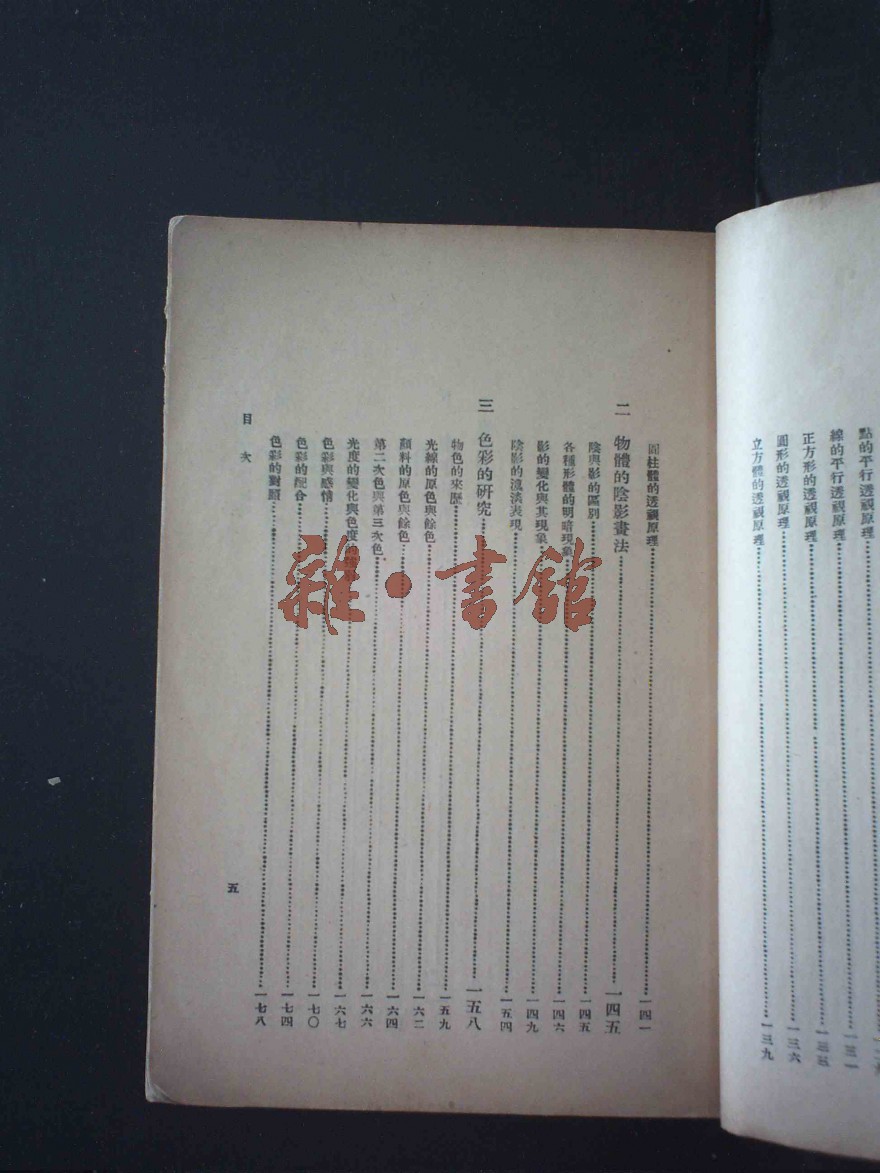 點的平行透視原理
線的平行透視原理……一三一
正方形的透視原理……一三三
圓形的透視原理……一三六
立方體的透視原理……一三九
圓柱體的透視原理……一四一
二 物體的陰影畫法……一四五
陰與影的區別……一四五
各種形體的明暗現象……一四六
影的變化與其現象……一四九
陰影的濃淡表現……一五四
三 色彩的研究……一五八
物色的來歷……一五九
光線的原色與餘色……一六二
顏料的原色與餘色……一六四
第二次色與第三次色……一六六
光度的變化與色度的……一六七
色彩與感情……一七〇
色彩的配合……一七四
色彩的對照……一七八
目次
五
雜·書館